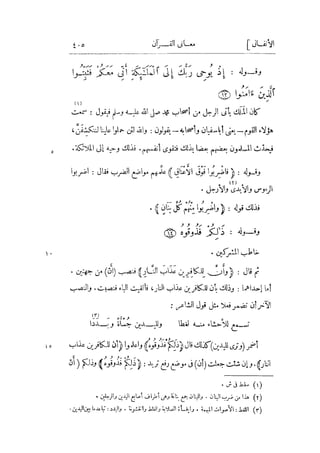 الأنفال ] معانى القرآن ٤٠٥
وقوله : إِذْ يُوحِى رَبُّكَ إِلَى ٱلْمَلَٰٓئِكَةِ أَنِّى مَعَكُمْ فَثَبِّتُوا۟
ٱلَّذِينَ ءَامَنُوا۟ ١٢
كان الملك يأتى الرجل من أصحاب محمد صلى الله عليه وسلم فيقول : سمعت (١)
هؤلاء القوم — يعنى أبا سفيان وأصحابه — يقولون : والله لئن حملوا علينا لننكشفنّ،
فيحدّث المسلمون بعضهم بعضا بذلك فتقوى أنفسهم. فذلك وحيه إلى الملائكة. ٥
وقوله : ﴿فَاضْرِبُوا فَوْقَ الْأَعْنَاقِ﴾ علَّمهم مواضع الضرب فقال : اضربوا
الرءوس والأيدى والأرجل. (٢)
فذلك قوله : ﴿وَاضْرِبُوا مِنْهُمْ كُلَّ بَنَانٍ﴾.
وقوله : ذَٰلِكُمْ فَذُوقُوهُ ١٤
خاطب المشركين. ١٠
ثم قال : ﴿وَأَنَّ لِلْكَافِرِينَ عَذَابَ النَّارِ﴾ فنصب (أنّ) من جهتين.
أما إحداهما : وذلك بأن للكافرين عذاب النار، فألقيت الباء فنصبت. والنصب
الآخر أن تضمر فعلا مثل قول الشاعر :
تسمع للأحشاء منه لغطا ولليدين جُسْأة وبَدَدا (٣)
أضمر (وترى لليدين) كذلك قال ﴿ذَلِكُمْ فَذُوقُوهُ﴾ واعلموا ﴿أن للكافرين عذاب ١٥
النار﴾. وإن شئت جعلت (أن) فى موضع رفع تريد : ﴿ذَلِكُمْ فَذُوقُوهُ﴾ وذلكم ﴿أَنَّ
(١) سقط فى ش.
(٢) هذا من ضرب البنان. والبنان جمع بنانة وهى أطراف أصابع اليدين والرجلين.
(٣) اللغط : الأصوات المبهمة. والجسأة الصلابة والغلظ والخشونة. والبدد : تباعد ما بين اليدين.